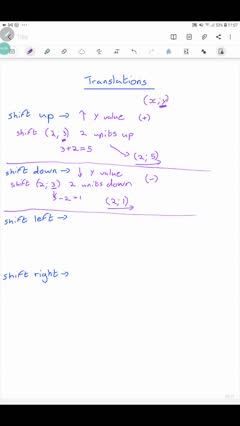 11:07
Translations
(x;y)
shift up → ↑ y value (+)
shift (2;3) 2 units up
3+2=5
→ (2;5)
shift down → ↓ y value (-)
shift (2;3) 2 units down
3-2=1
(2;1)
shift left →
shift right →